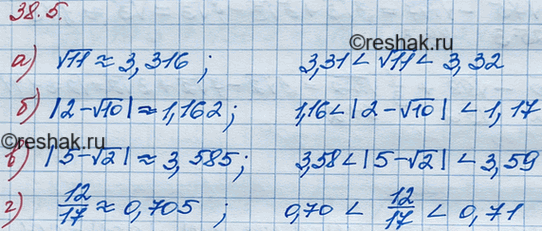 38.5.
©reshak.ru
а) √11 ≈ 3,316 ; 3,31 < √11 < 3,32
б) |2-√10| ≈ 1,162 ; 1,16 < |2-√10| < 1,17
©reshak.ru
в) |5-√2| ≈ 3,585 ; 3,58 < |5-√2| < 3,59
г) 12/17 ≈ 0,705 ; 0,70 < 12/17 < 0,71
©reshak.ru